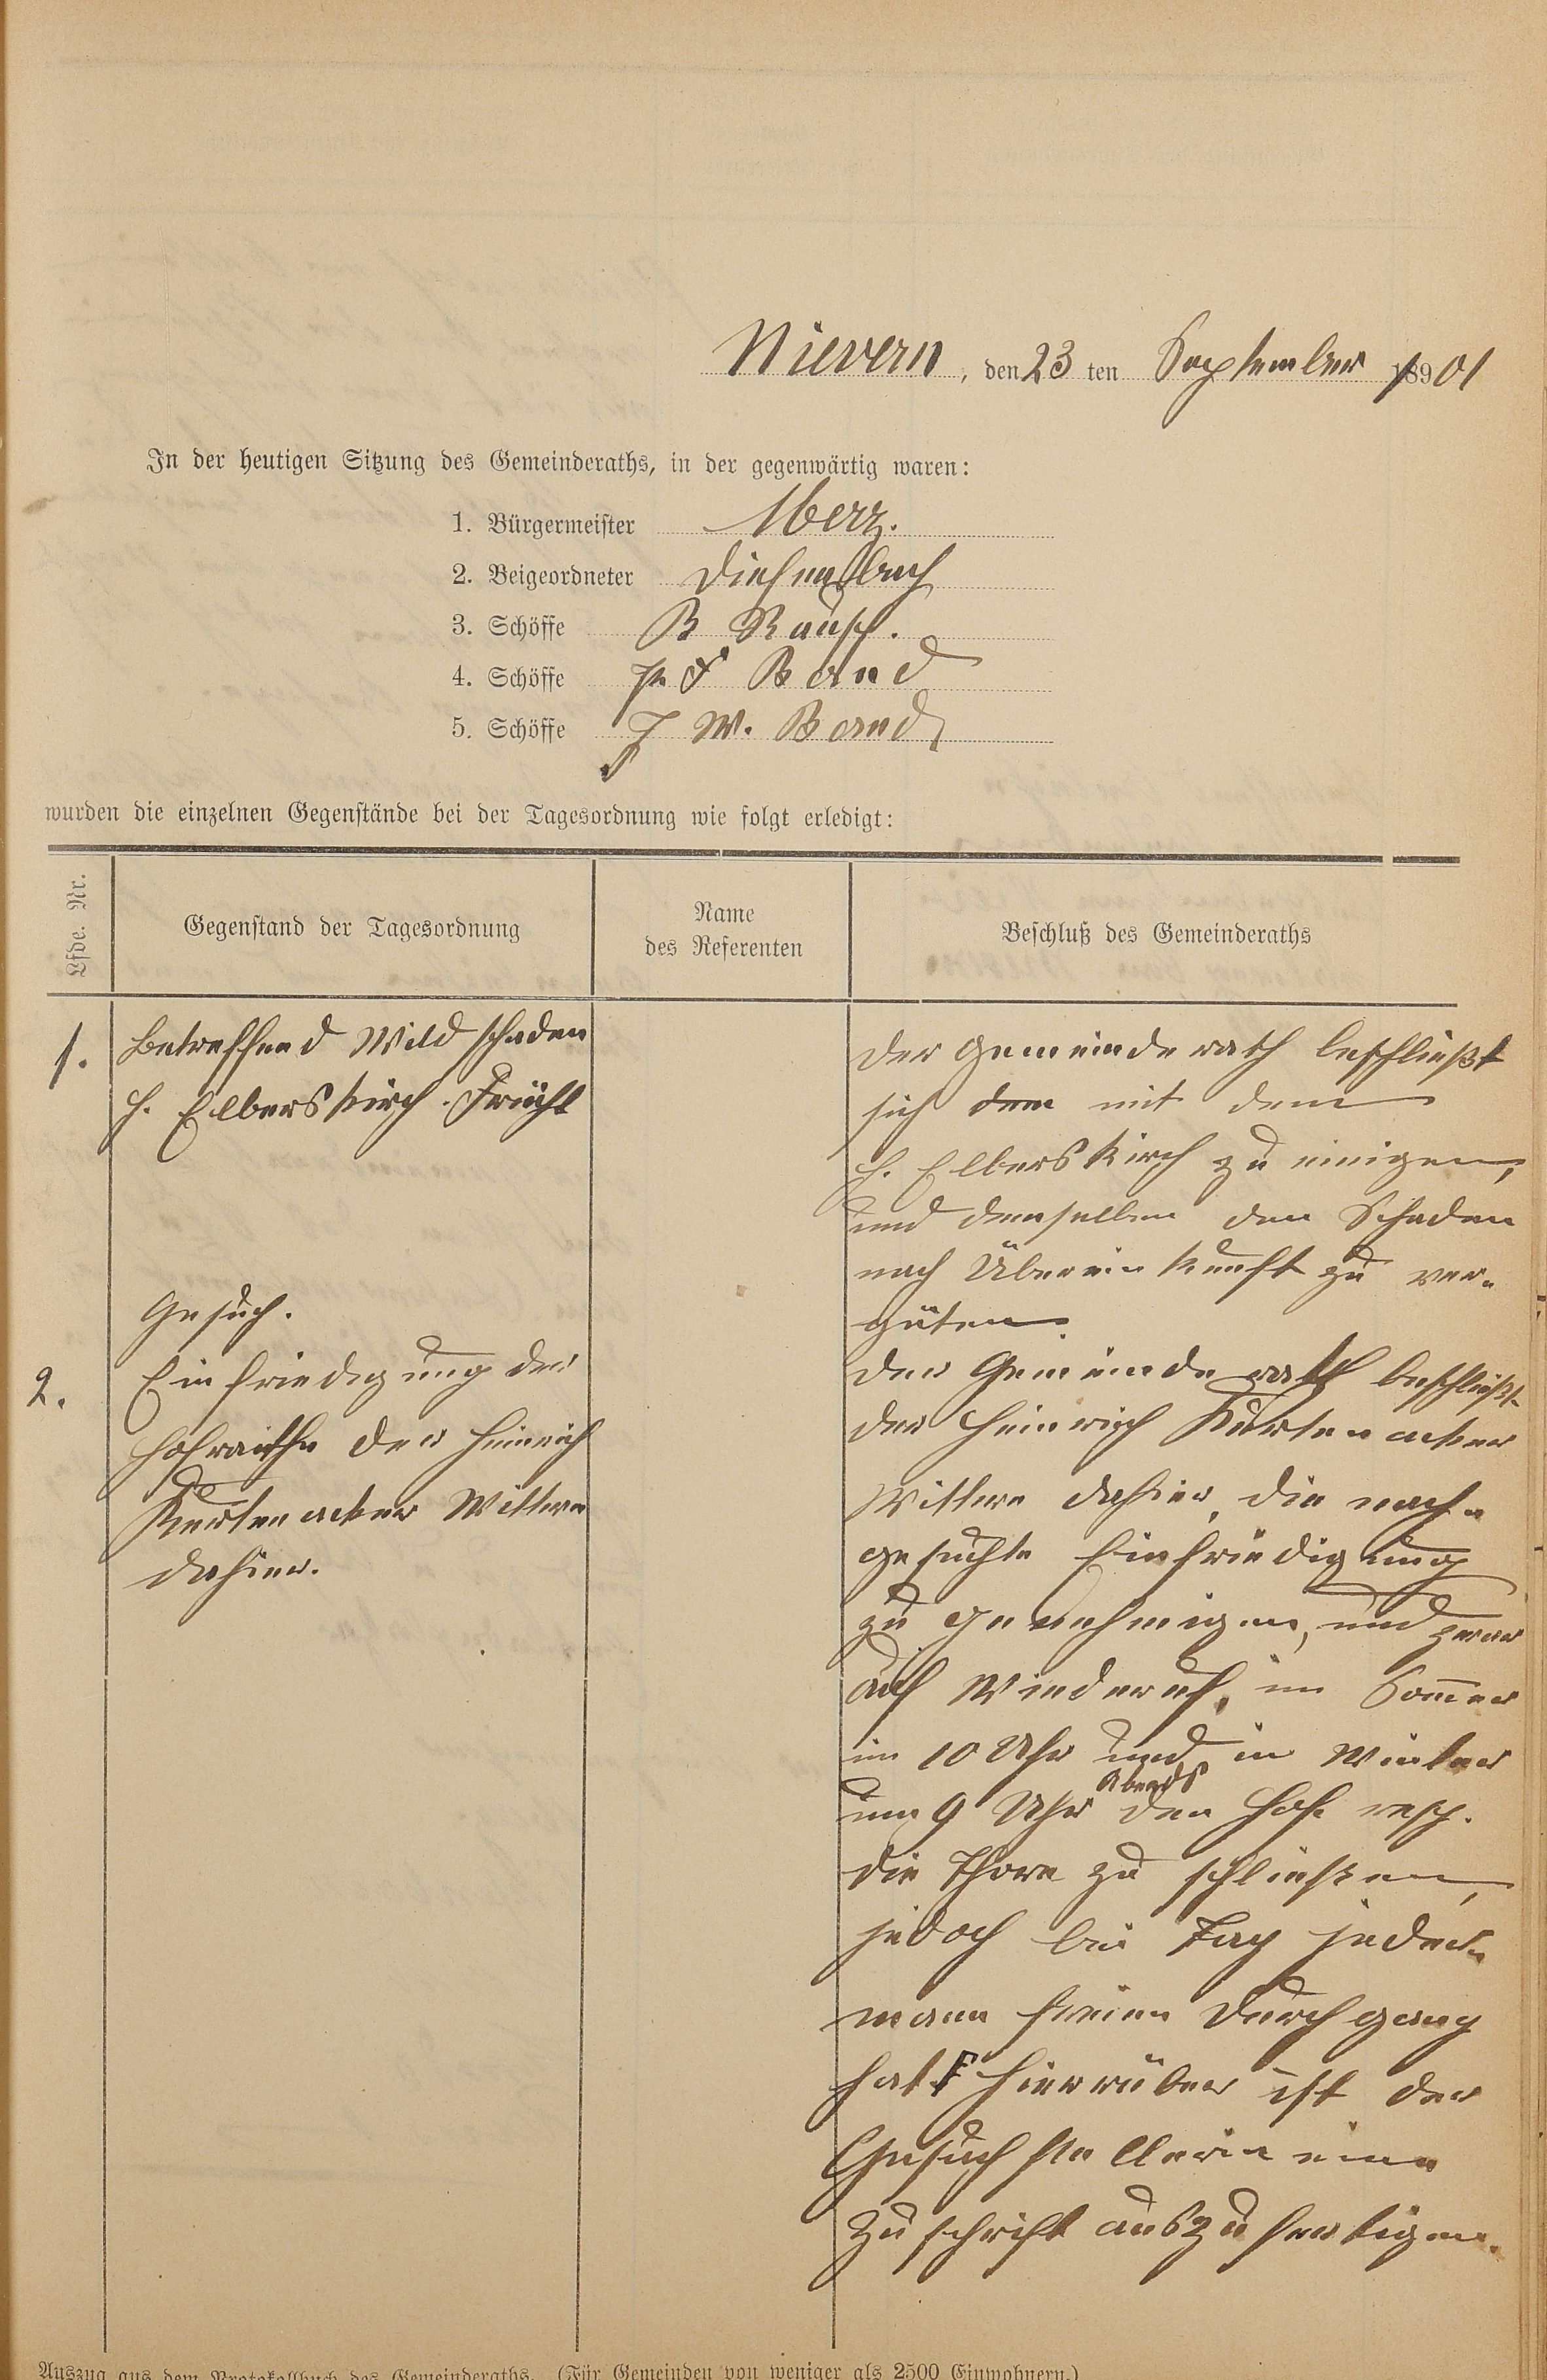 Nievern, den 23 ten September 1901
In der heutigen Sitzung des Gemeinderaths, in der gegenwärtig waren:
1. Bürgermeister Merz.
2. Beigeordneter Diefenbach
3. Schöffe B Rausch.
4. Schöffe P. J Band
5. Schöffe J W. Band
wurden die einzelnen Gegenstände bei der Tagesordnung wie folgt erledigt:
Lfde. Nr.
Gegenstand der Tagesordnung
Name
des Referenten
Beschluß des Gemeinderaths
1.
Betreffend Wildschaden
H. Elberskirch. Frücht
Der Gemeinderath beschließt
sich dem mit dem
H. Elberskirch zu einigen,
und demselben den Schaden
nach Übereinkunft zu ver-
güten.
2.
Gesuch.
Einfriedigung der
Hofraithe der Heinrich
Kurtenacker Wittwe
dahier.
Der Gemeinderath beschließt
der Heinrich Kurtenacker
Wittwe dahier, die nach-
gesuchte Einfriedigung
zu genehmigen, und zwar
auf Wiederuf, im Sommer
im 10 Uhr und in Winter
um 9 Uhr Abends den Hof resp.
die Thore zu schließen,
jedoch bei Tag jeder-
mann freien Durchgang
hat. Hierrüber ist der
Gesuchstellerin eine
Zuschrift auszufertigen.
Auszug aus dem Protokollbuch des Gemeinderaths. (Für Gemeinden von weniger als 2500 Einwohnern.)